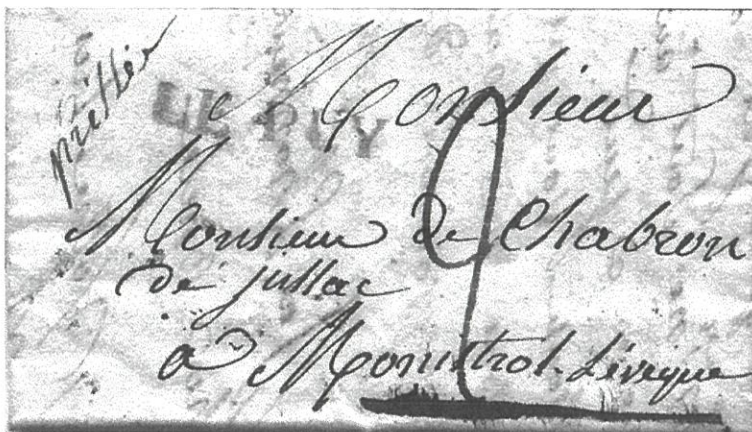 LE PUY
Monsieur
Monsieur de Chabron
de jussac
à Monistrol-L'évêque